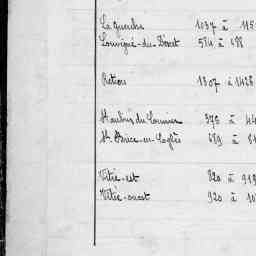 La Guerche 1037 à 115
Louvigné-du-Désert 584 à 688
Retiers 1307 à 1428
St Aubin du Cormier 370 à 44
St Brice-en-Coglès 689 à 81
Vitré-est 820 à 919
Vitré-ouest 920 à 10